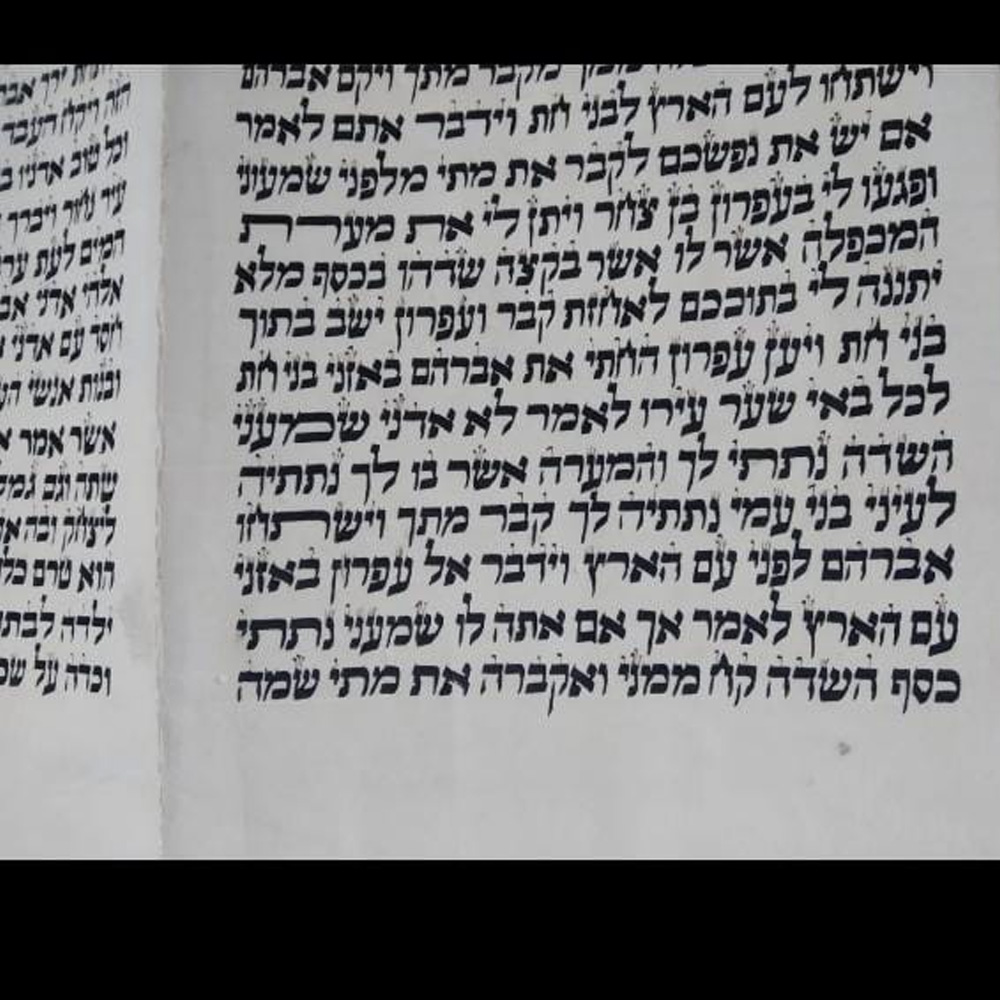 מקבר מתך ויקם אברהם
וישתחו לעם הארץ לבני חת וידבר אתם לאמר
אם יש את נפשכם לקבר את מתי מלפני שמעוני
ופגעו לי בעפרון בן צחר ויתן לי את מערת
המכפלה אשר לו אשר בקצה שדהו בכסף מלא
יתננה לי בתוככם לאחזת קבר ועפרון ישב בתוך
בני חת ויען עפרון החתי את אברהם באזני בני חת
לכל באי שער עירו לאמר לא אדני שמעני
השדה נתתי לך והמערה אשר בו לך נתתיה
לעיני בני עמי נתתיה לך קבר מתך וישתחו
אברהם לפני עם הארץ וידבר אל עפרון באזני
עם הארץ לאמר אך אם אתה לו שמעני נתתי
כסף השדה קח ממני ואקברה את מתי שמה
ירך
הזה ויקח העבד
וכל טוב אדניו
עיר נחור ויברך
המים לעת
אלהי אדני
חסד עם אדני
ובנות אנשי
אשר אמר
שתה וגם
ליצחק ובה
הוא טרם
ילדה
וכדה על